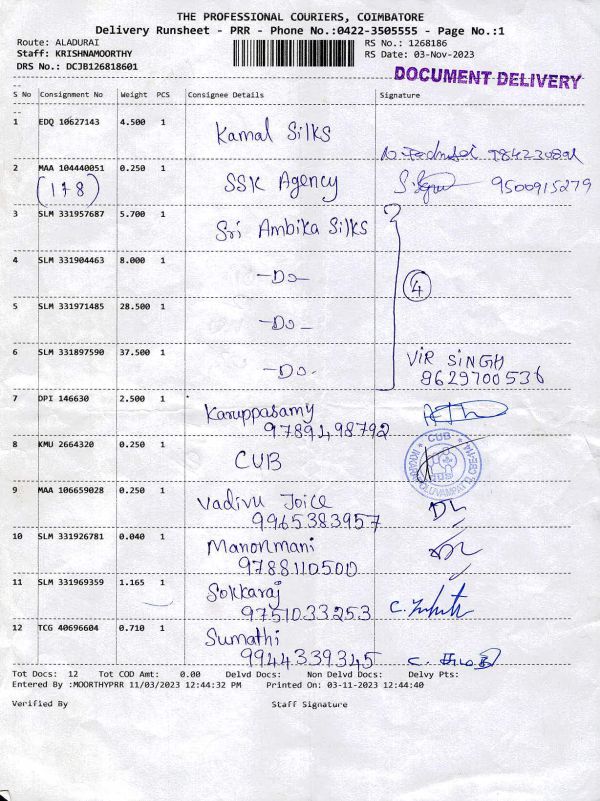 THE PROFESSIONAL COURIERS, COIMBATORE
Delivery Runsheet - PRR - Phone No.:0422-3505555 - Page No.:1
Route: ALADURAI
Staff: KRISHNAMOORTHY
DRS No.: DCJB126818601
RS No.: 1268186
RS Date: 03-Nov-2023
DOCUMENT DELIVERY
S No Consignment No Weight PCS Consignee Details Signature
1 EDQ 10627143 4.500 1 Kamal Silks
2 MAA 104440051 0.250 1 SSK Agency 9500915279
(178)
3 SLM 331957687 5.700 1 Sri Ambika Silks
4 SLM 331904463 8.000 1 -Do- 4
5 SLM 331971485 28.500 1 -Do-
6 SLM 331897590 37.500 1 -Do- VIR SINGH
9629700536
7 DPI 146630 2.500 1 Karuppasamy
9789498792
8 KMU 2664320 0.250 1 CUB CUB
9 MAA 106659028 0.250 1 Vadivu Joice
9965383957
10 SLM 331926781 0.040 1 Manonmani
9788110500
11 SLM 331969359 1.165 1 Sokkaraj
9751033253
12 TCG 40696604 0.710 1 Sumathi
9944339345
Tot Docs: 12 Tot COD Amt: 0.00 Delvd Docs: Non Delvd Docs: Delvy Pts:
Entered By :MOORTHYPRR 11/03/2023 12:44:32 PM Printed On: 03-11-2023 12:44:40
Verified By Staff Signature